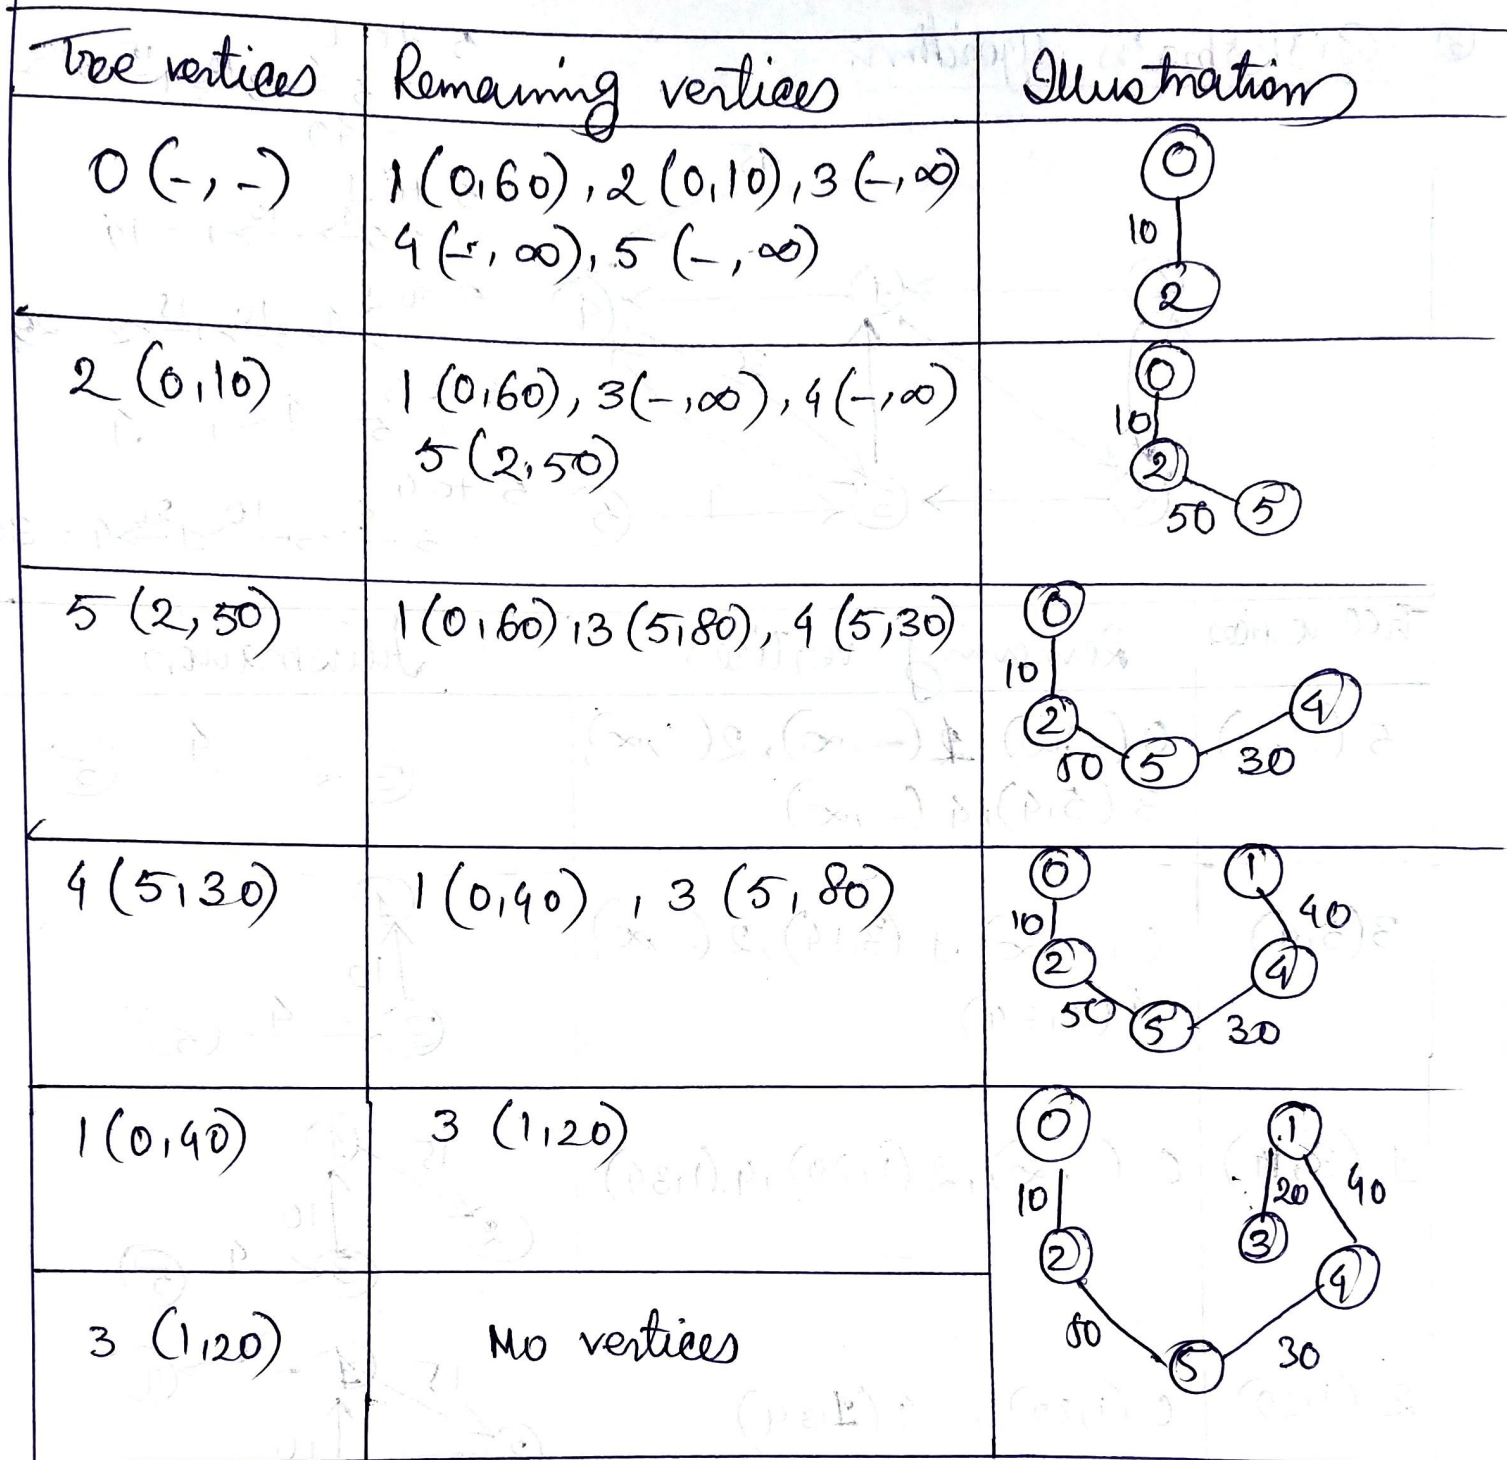 Tree vertices Remaining vertices Illustration
0 (-, -) 1 (0,60), 2 (0,10), 3 (-, ∞)
4 (-, ∞), 5 (-, ∞)
0
10
2
2 (0,10) 1 (0,60), 3(-,∞), 4 (-,∞)
5 (2,50)
0
10
2
50 5
5 (2, 50) 1 (0,60), 3 (5,80), 4 (5,30)
0
10
2 4
50 5 30
4 (5,30) 1 (0,40) , 3 (5, 80)
0 1
10 40
2 4
50 5 30
1 (0,40) 3 (1,20)
0 1
10 20 40
2 3 4
50 5 30
3 (1,20) No vertices